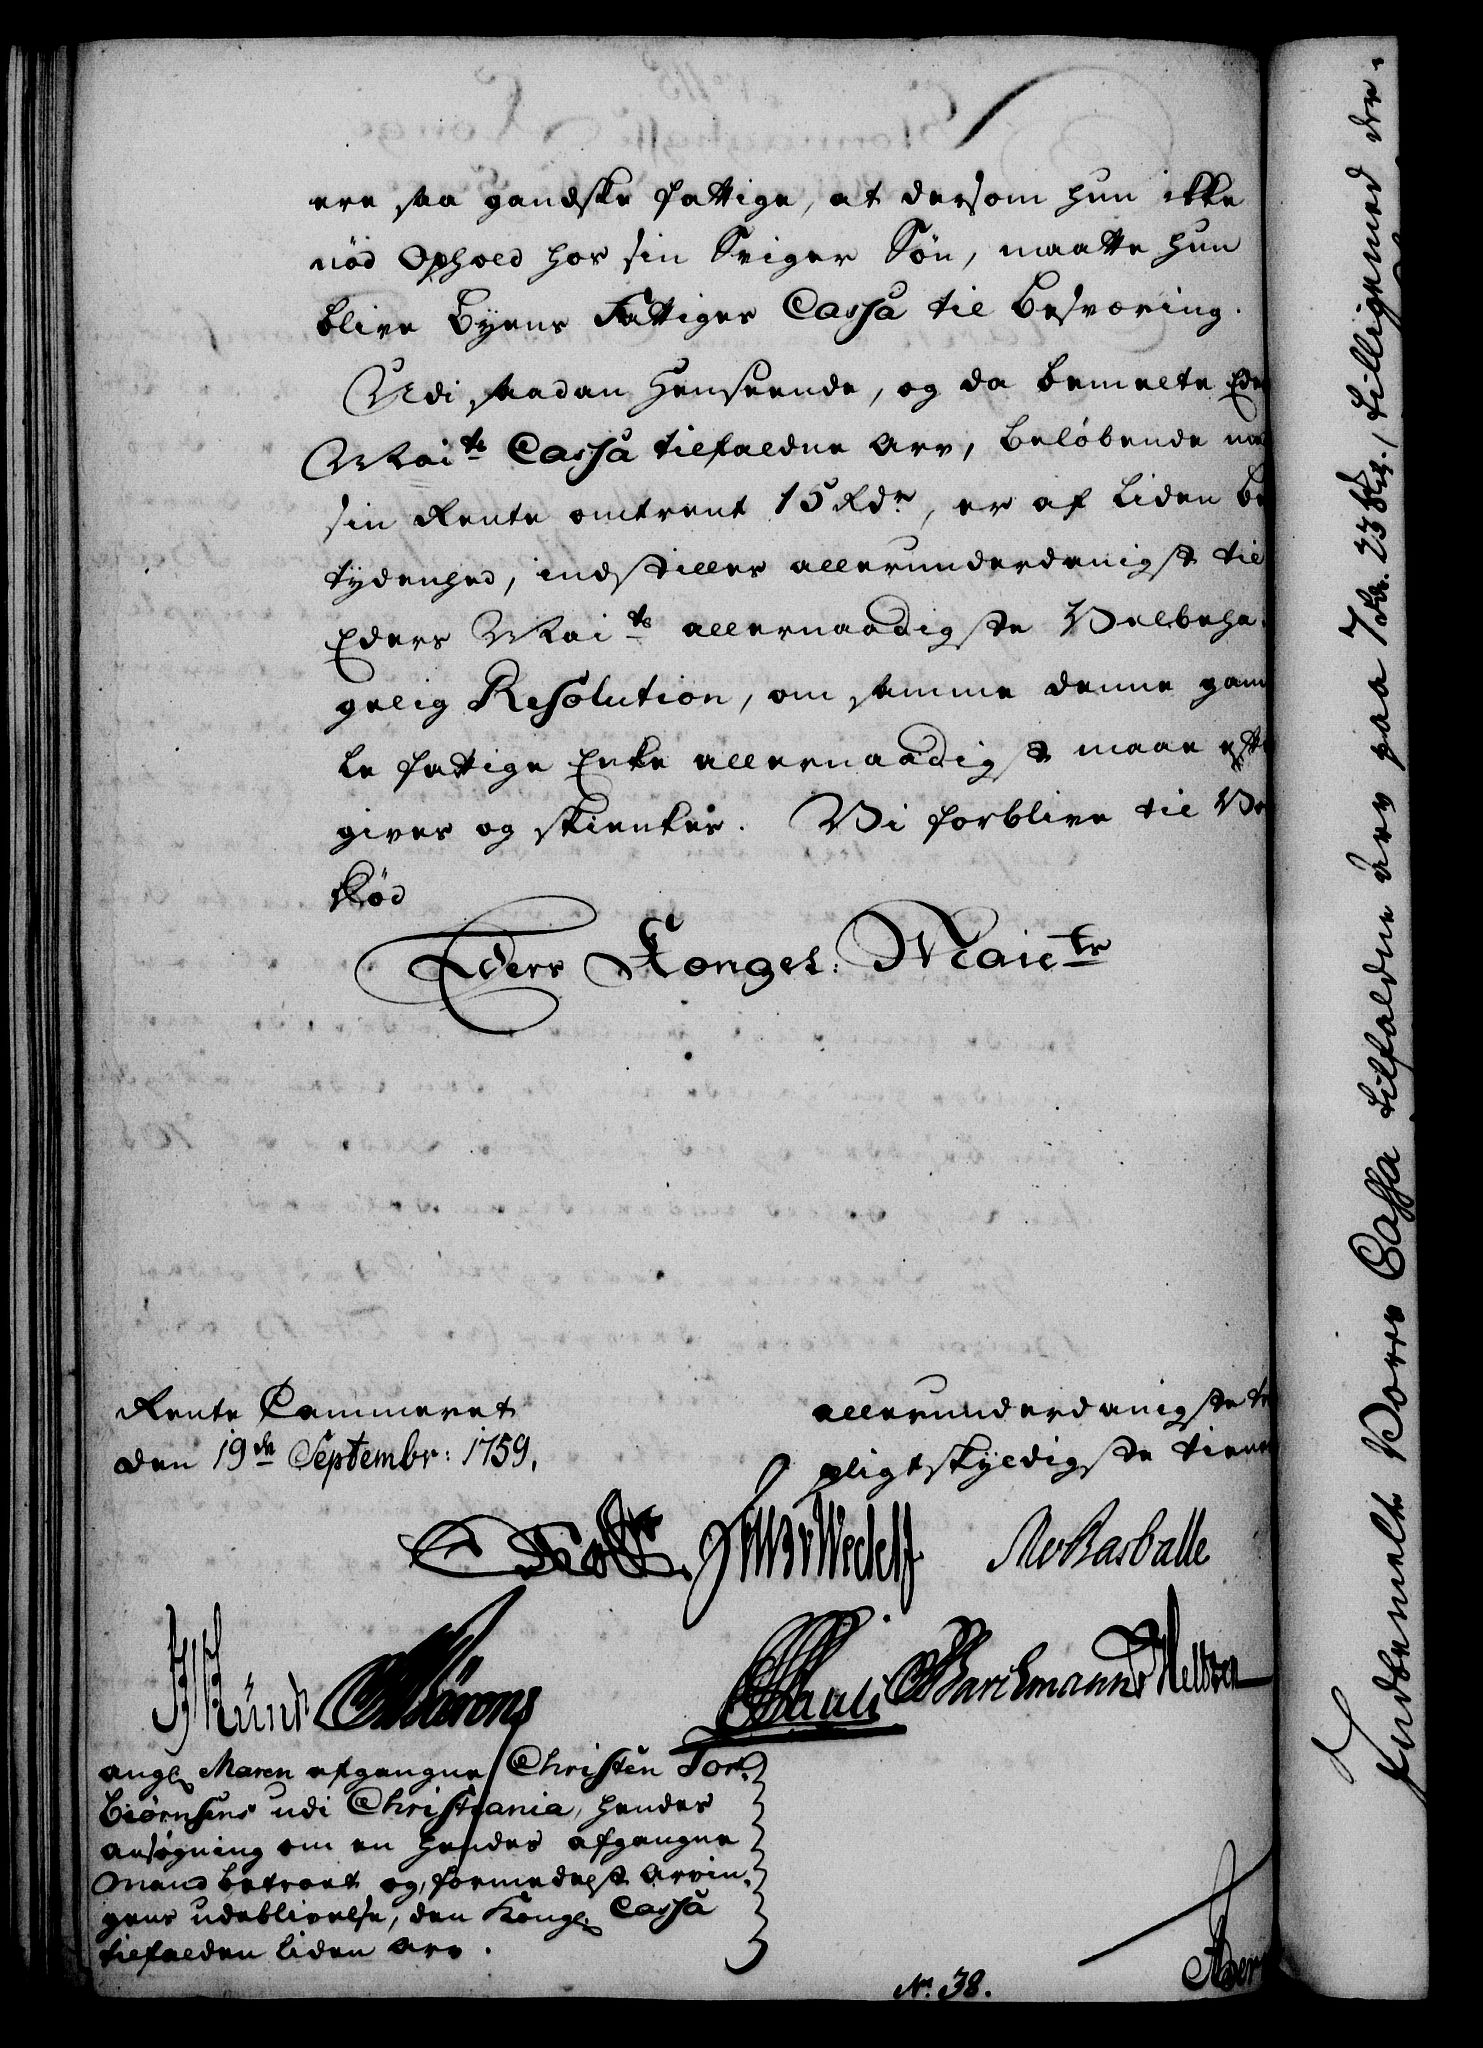 ere saa gandske fattige, at dersom hun ikke
nöd Ophold hos sin Sviger Sön, maatte hun
blive Byens Fattiges Cassa til Besværing.
Udi saadan Henseende, og da bemelte Eders
Mai:ts Cassa tilfaldne Arv, beløbende med
sin Rente omtrent 15 Rdr, er af liden be
tydenhed, indstilles allerunderdanigst til
Eders Mai:ts allernaadigste Velbeha-
gelig Resolution, om samme denne gam
le fattige Enke allernaadigst maae efter
gives og skienkes. Vi forblive til
Död
Eders Kongel: Maie:ts
Rente Cammeret
den 19de Septembr: 1759.
allerunderdanigste
pligtskyldigste tienere
Rasballe
Bärens
Pauli Barchmann
angl. Maren afgangne Christen Tor-
biörnsens udi Christiania, hendes
ansögning om en hendes afgangne
Mand betroet og, formedelst Arvin-
gens udeblivelse, den Kongl. Cassa
tilfalden liden Arv.
No. 38.
Indbemelte Vores Cassa tilfaldne Arv paa 7 Rdr. 23 sk., tilligemed der-